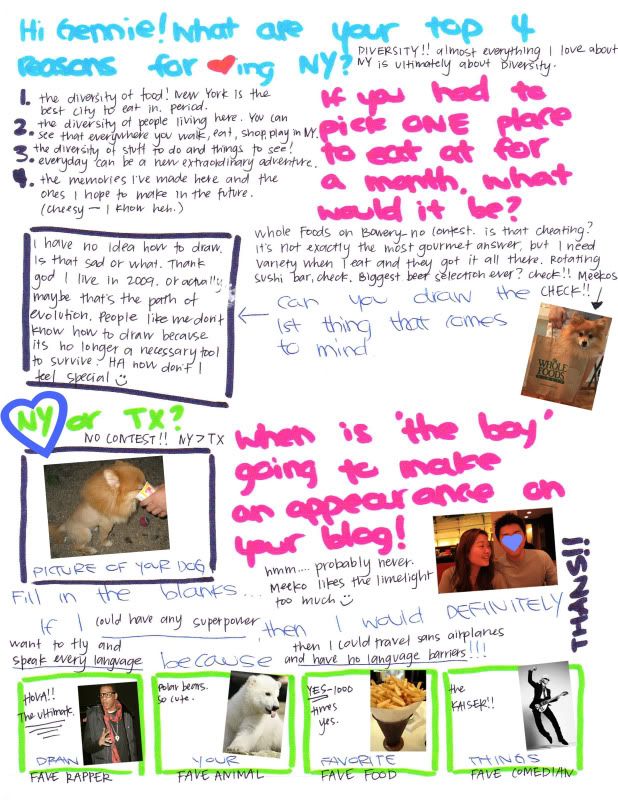 Hi Gennie! What are your top 4
reasons for ing NY?
DIVERSITY!! almost everything I love about
NY is ultimately about Diversity.
1. the diversity of food! New York is the
best city to eat in. period.
2. the diversity of people living here. You can
see that everywhere you walk, eat, shop, play in NY.
3. the diversity of stuff to do and things to see!
everyday can be a new extraordinary adventure.
4. the memories I've made here and the
ones I hope to make in the future.
(cheesy — I know heh.)
If you had to
pick ONE place
to eat at for
a month, what
would it be?
Whole Foods on Bowery - no contest. is that cheating?
it's not exactly the most gourmet answer, but I need
variety when I eat and they got it all there. Rotating
sushi bar, check. Biggest beer selection ever? check!! Meekos
CHECK!!
can you draw the
1st thing that comes
to mind
I have no idea how to draw.
Is that sad or what. Thank
god I live in 2009. or actually
maybe that's the path of
evolution. People like me don't
know how to draw because
its no longer a necessary tool
to survive. HA now don't I
feel special
WHOLE
FOODS
NY or TX?
NO CONTEST!! NY > TX
PICTURE OF YOUR DOG
When is 'the boy'
going to make
an appearance on
your blog!
hmm.... probably never.
Meeko likes the limelight
too much
THANS!!
Fill in the blanks...
If I could have any superpower, then I would DEFINITELY
want to fly and
speak every language because then I could travel sans airplanes
and have no language barriers!!!
HOVA!!
The Ultimate.
polar bears.
so cute.
YES-1000
times
yes.
the
KAISER!!
DRAW YOUR FAVORITE THINGS
FAVE RAPPER
FAVE ANIMAL
FAVE FOOD
FAVE COMEDIAN